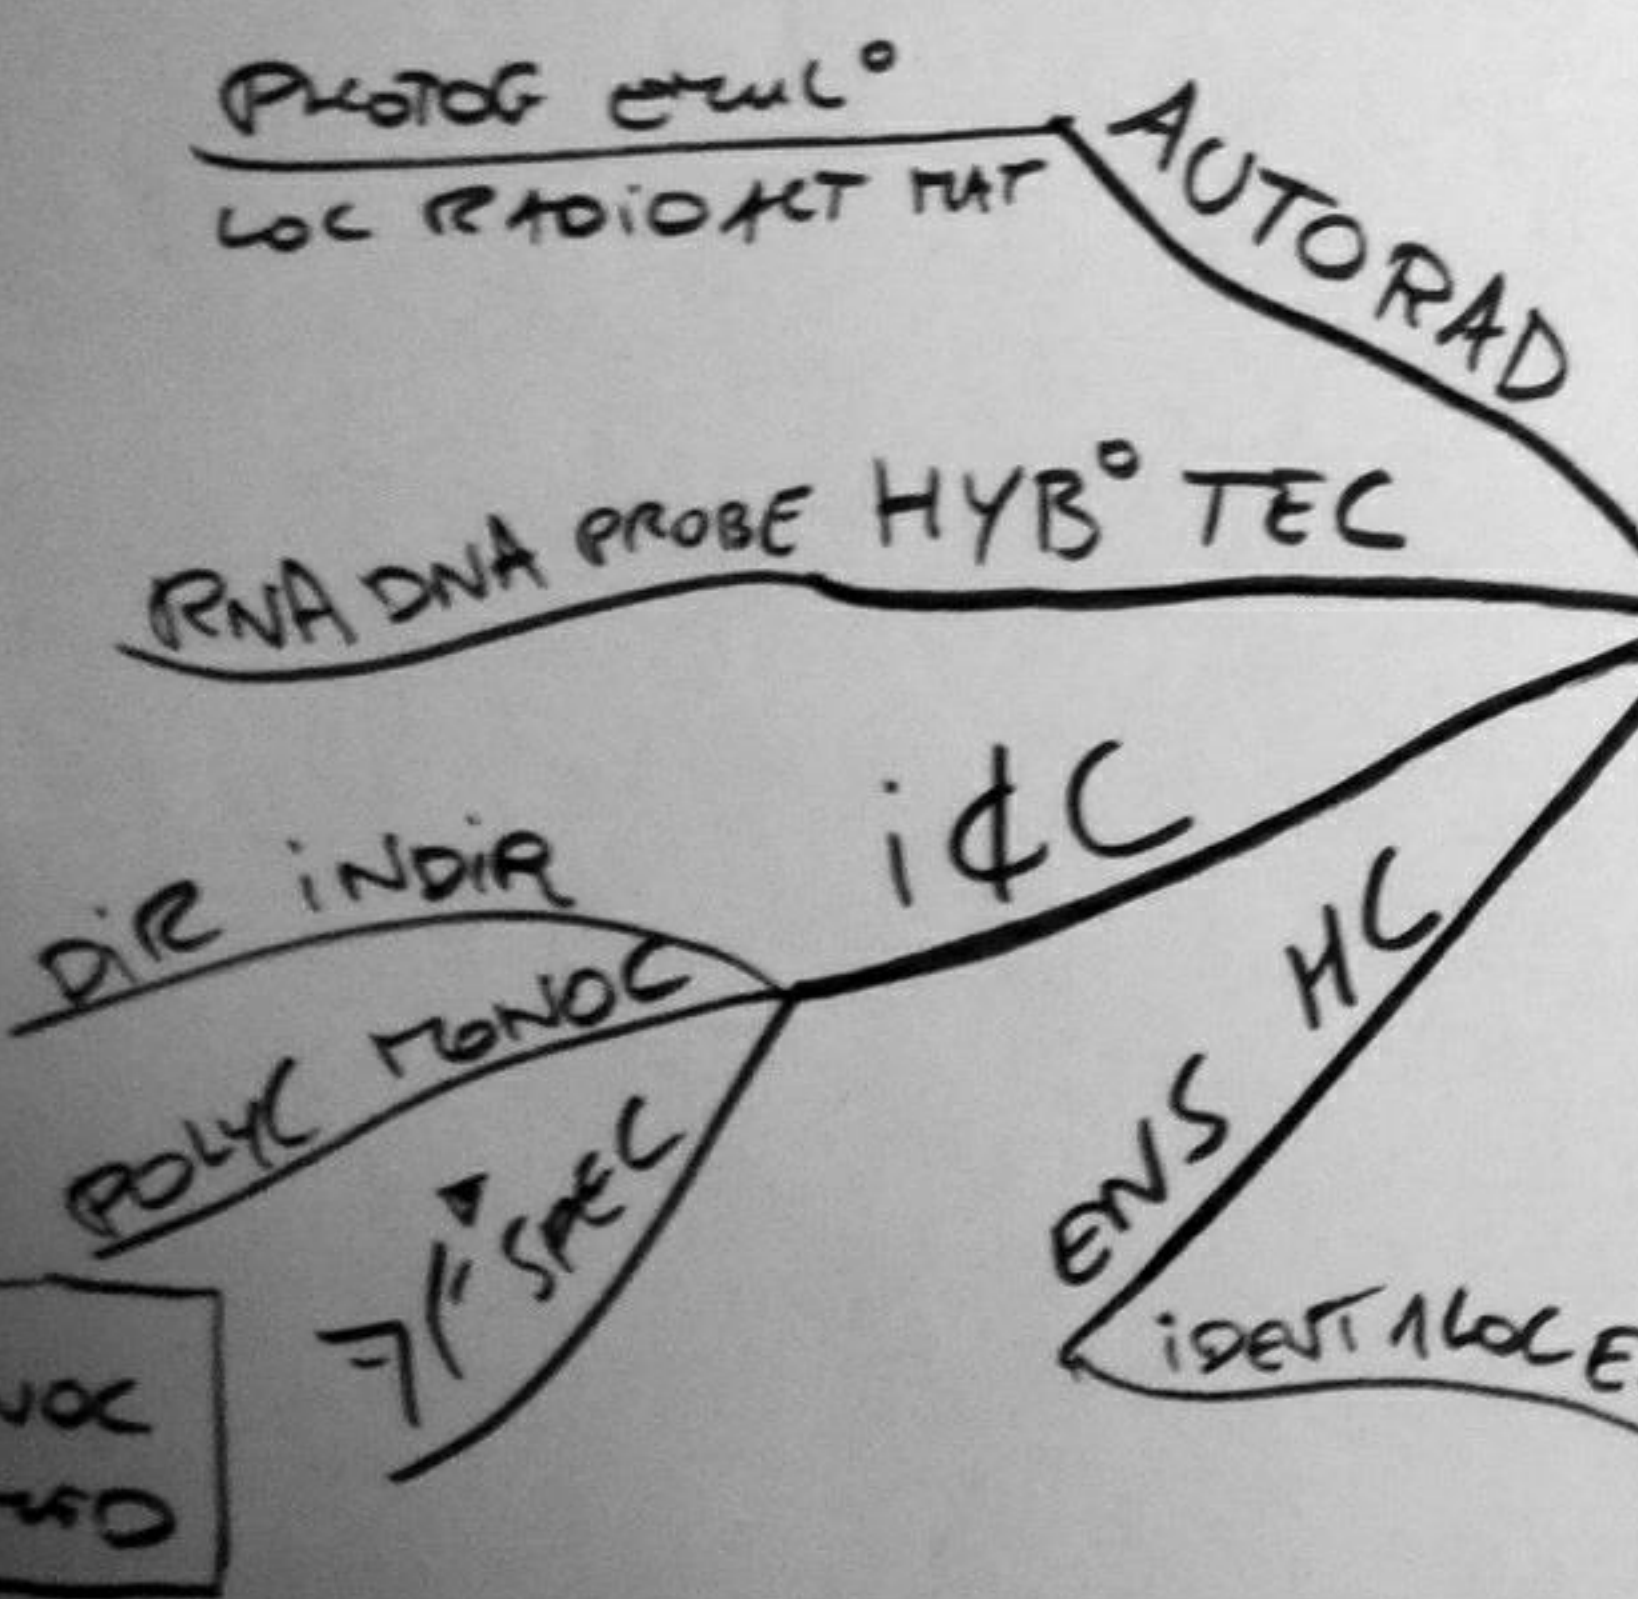 PHOTOG emul°
LOC RADIOACT MAT
AUTORAD
RNA DNA PROBE HYB° TEC
i¢C
DiR iNDiR
POLYC MONOC
SPEC
ENS HC
iDENT 1 LOC E
NOC